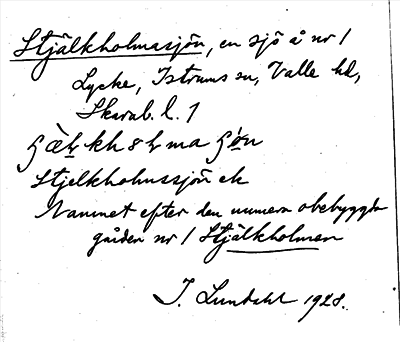 Stjälkholmasjön, en sjö å nr 1
Lycke, Istrums sn, Valle hd,
Skarab. l. 1
Stjelkholmssjön ek
Namnet efter den numera obebyggda
gården nr 1 Stjälkholmen
J. Lundahl 1928.